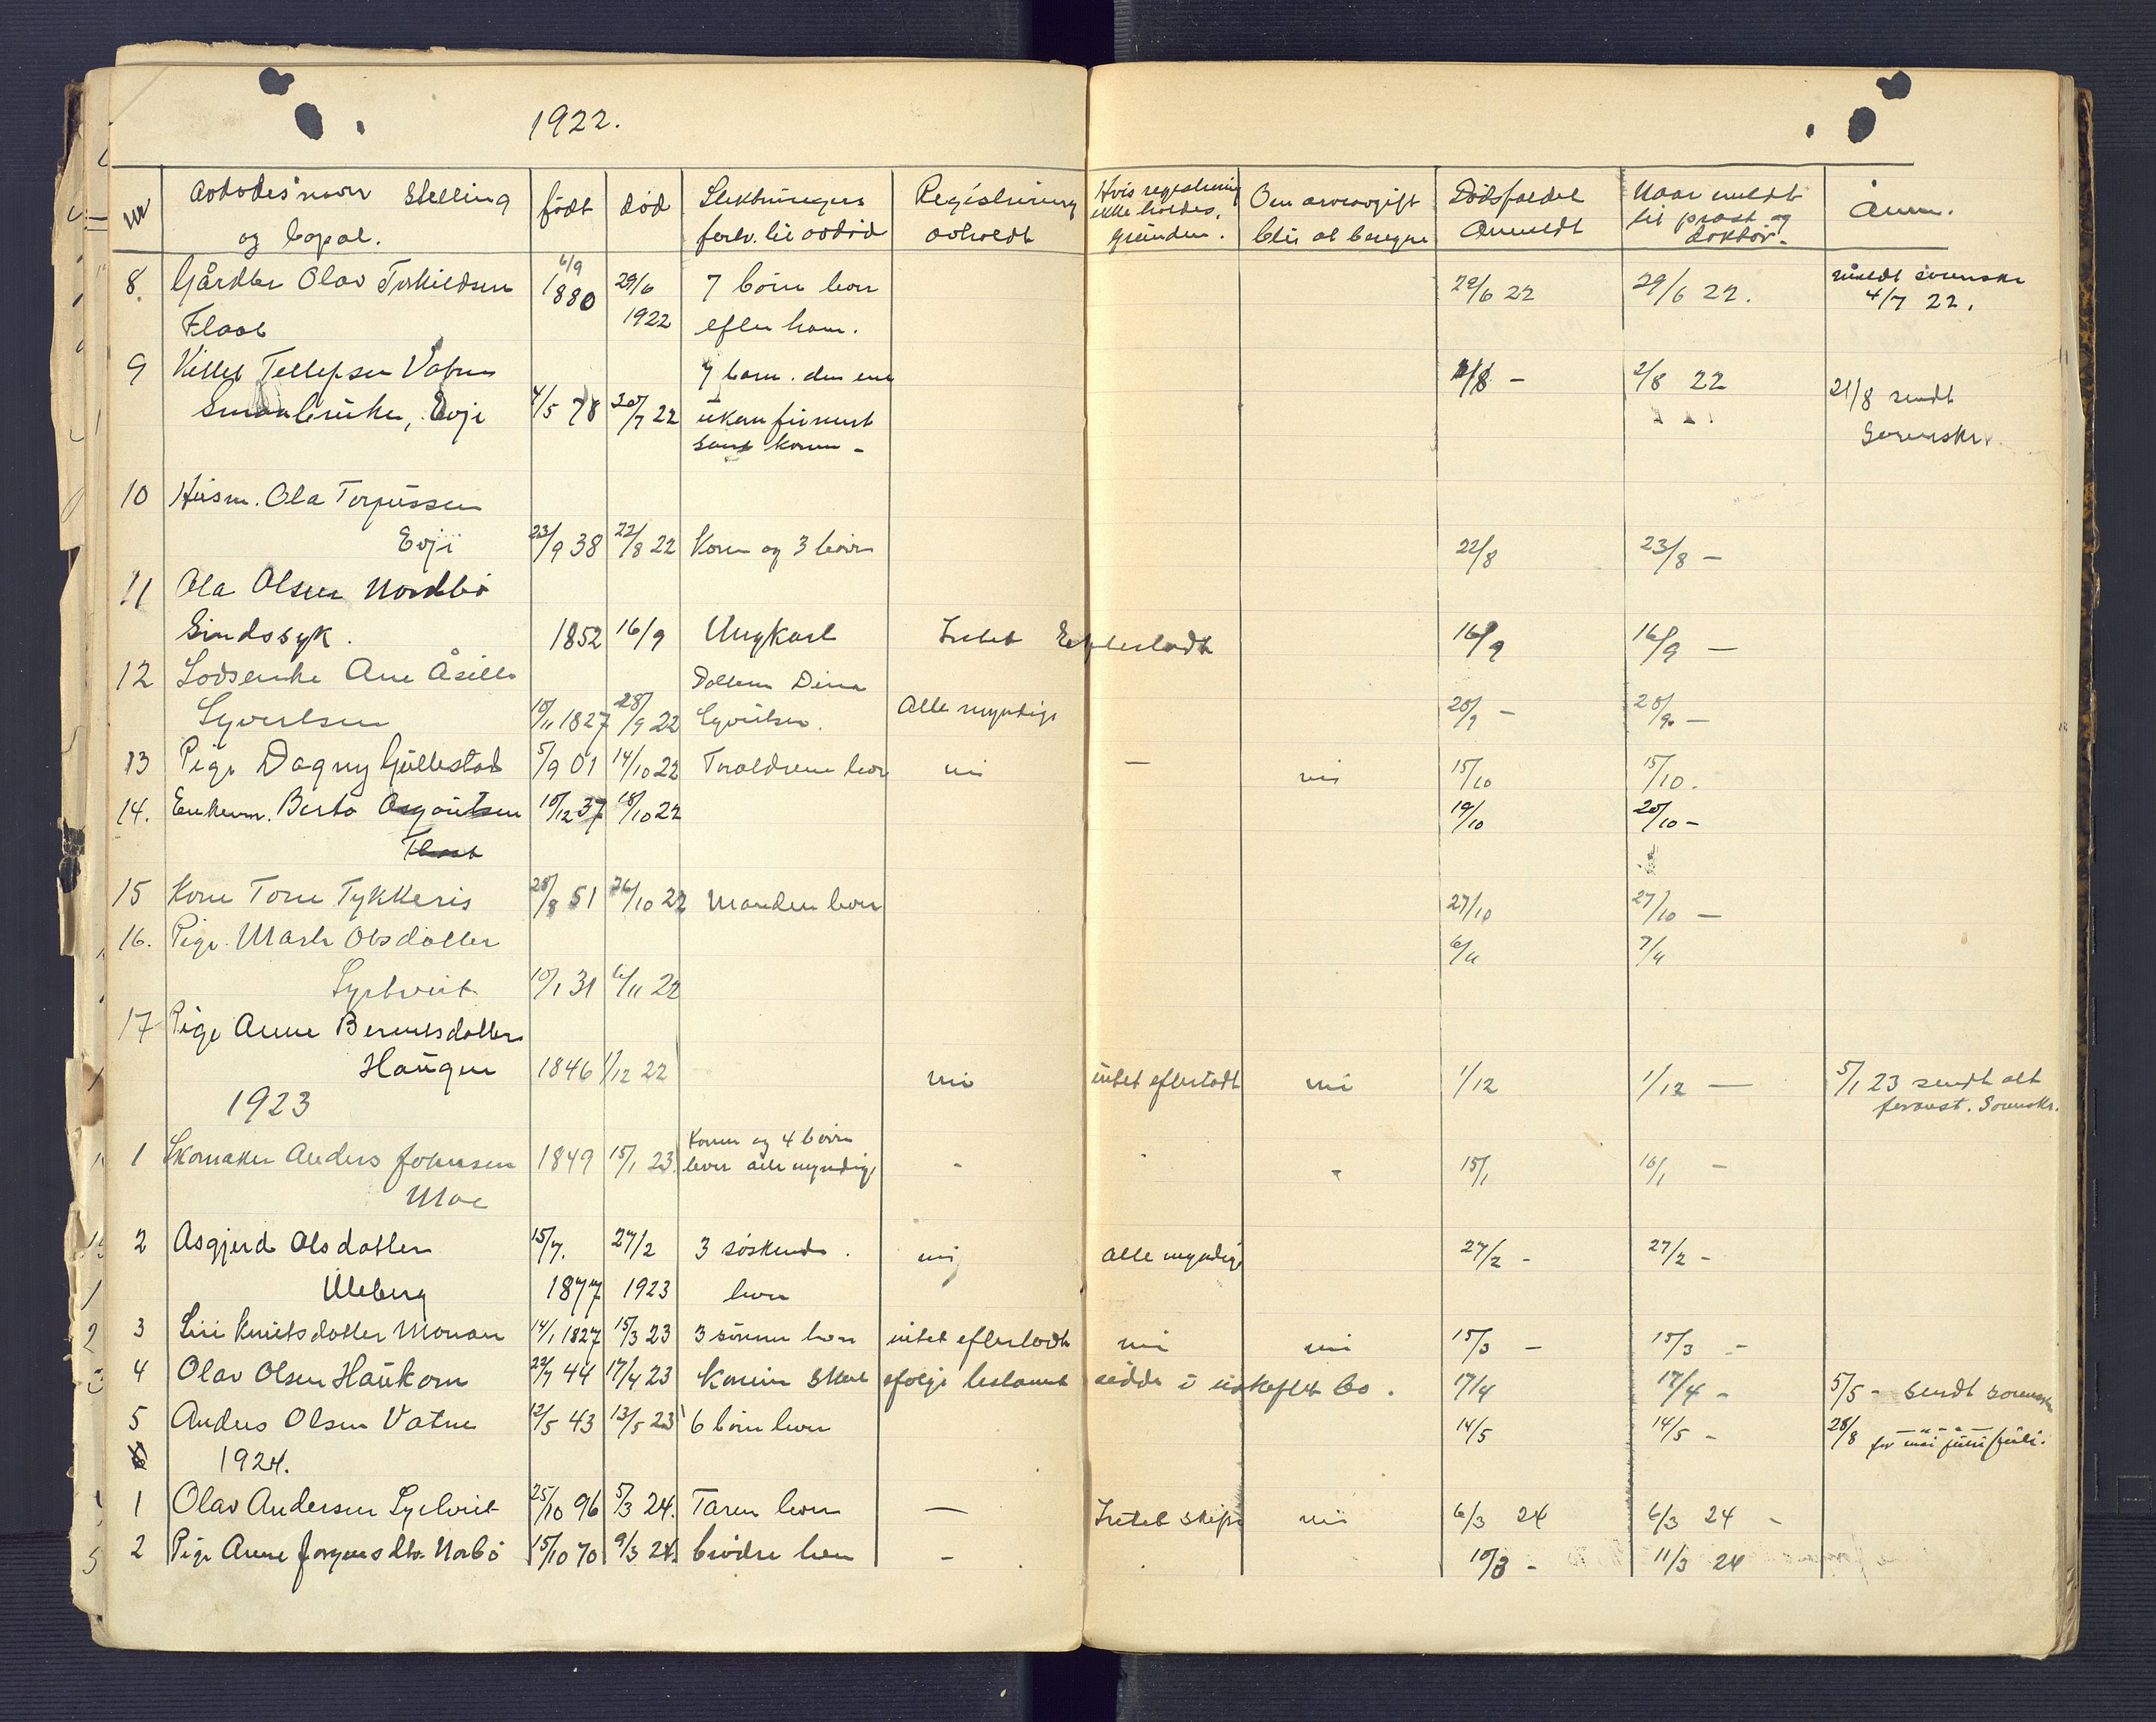 1922.
Nr
Avdødes navn Stelling
og bopæl.
født
død
Slektningers
forh. til avdød
Registrering
avholdt
Hvis registrering
ikke holdes,
grunden.
Om arveavgift
blir at beregne
Dødsfaldet
Anmeldt
Naar meldt
til prest og
doktor.
Anm.
8. Gårdbr Olav Torkildsen 6/9 1880 29/6 7 børn lever 22/6 22 29/6 22. meldt sorenskr
Flaat 1922 efter ham. 4/7 22.
9 Killel Tellefsen Vatne 7 barn. den ene 2/8 - 2/8 22
Smaabruker, Evje 4/5 78 30/7 22 ukonfirmert 21/8 sendt
samt kone - Sorenskr.
10 Husm. Ola Torjussen
Evje 23/9 38 22/8 22 Kone og 3 børn 22/8 23/8 -
11 Ola Olsen Nordbø
Sindssyk. 1852 16/9 Ungkarl Intet Efterladt 16/9 16/9 -
12 Lodsenke Ane Åsille Datteren Dina
Syvertsen 10/11 1827 28/9 22 Syvertsen. Alle myndige 28/9 - 28/9 -
13 Pige Dagny Gullestad 5/9 01 14/10 22 Foreldrene lever nei - nei 15/10 15/10.
14. Enkem. Berto 10/12 37 18/10 22 19/10 20/10 -
Flaat
15 Kone Tone Tykkeris 28/8 51 26/10 22 Manden lever 27/10 27/10 -
16. Pige. Marte Olsdatter 6/11 7/11
Syrtveit 10/1 31 6/11 22
17 Pige Anne Berentsdatter
Haugen 1846 1/12 22 nei intet efterladt nei 1/12 1/12 - 5/1 23 sendt alt
1923 Sorenskr.
1 Skomaker Anders Johnsen 1849 15/1 23. Kone og 4 børn
lever alle myndige - 15/1 16/1 -
Moe
2 Asgjerd Olsdatter 15/7. 27/2 3 søskende. nei alle myndige 27/2 - 27/2 -
Uleberg 1877 1923 lever
3 Siri Knutsdatter Monan 14/1 1827 15/3 23 3 sønner lever intet efterladt nei nei 15/3 - 15/3 -
4 Olav Olsen Haukom 22/7 44 17/4 23 Konen skal ifølge testament sidde i uskiftet bo. 17/4 17/4 - 5/5 - sendt sorenskr
5 Anders Olsen Vatne 12/5 43 13/5 23 6 børn lever 14/5 14/5 - 28/8 for mai juni juli.
1924.
1 Olav Andersen Syrtveit 25/10 96 5/3 24. Faren lever - Intet skifte nei 6/3 24 6/3 24 -
2 Pige Anne Jørgensdtr. Norbø 15/10 70 9/3 24. brødre lever - 10/3 - 11/3 24